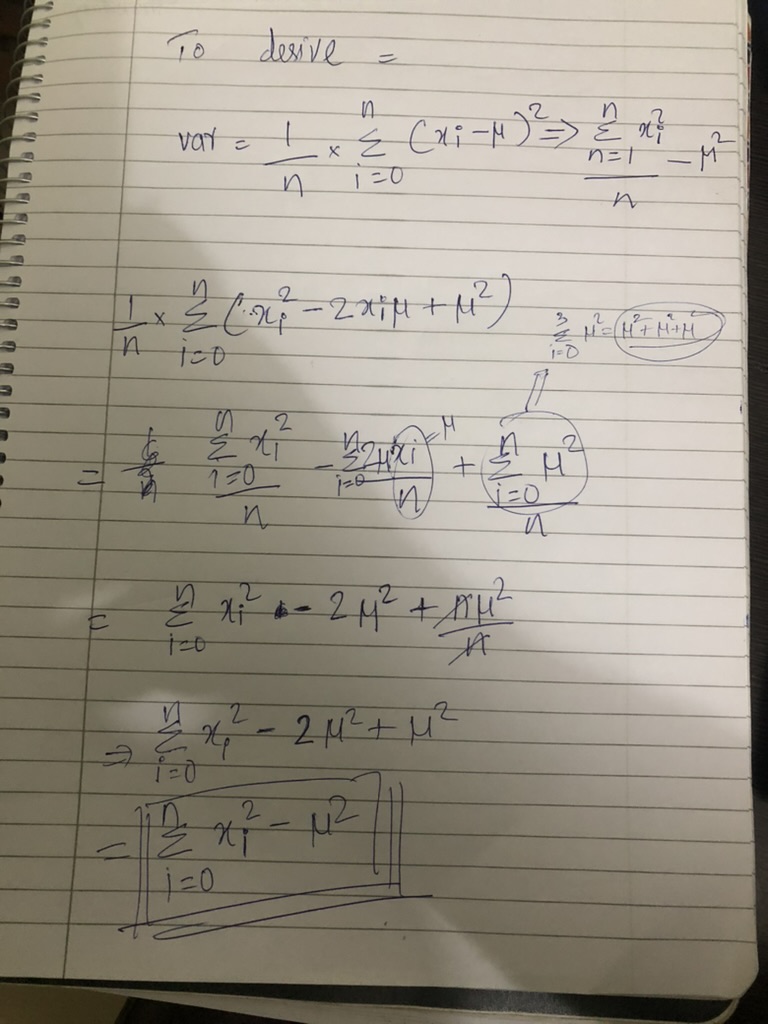 To desive =
var = 1/n × Σ_{i=0}^{n} (xi - μ)² => (Σ_{n=1}^{n} xi²)/n - μ²
1/n × Σ_{i=0}^{n} (xi² - 2xiμ + μ²)
Σ_{i=0}^{3} μ² = μ² + μ² + μ²
= (Σ_{i=0}^{n} xi²)/n - (Σ_{i=0}^{n} 2μxi)/n = μ + (Σ_{i=0}^{n} μ²)/n
= Σ_{i=0}^{n} xi² - 2μ² + nμ²/n
=> Σ_{i=0}^{n} xi² - 2μ² + μ²
= Σ_{i=0}^{n} xi² - μ²